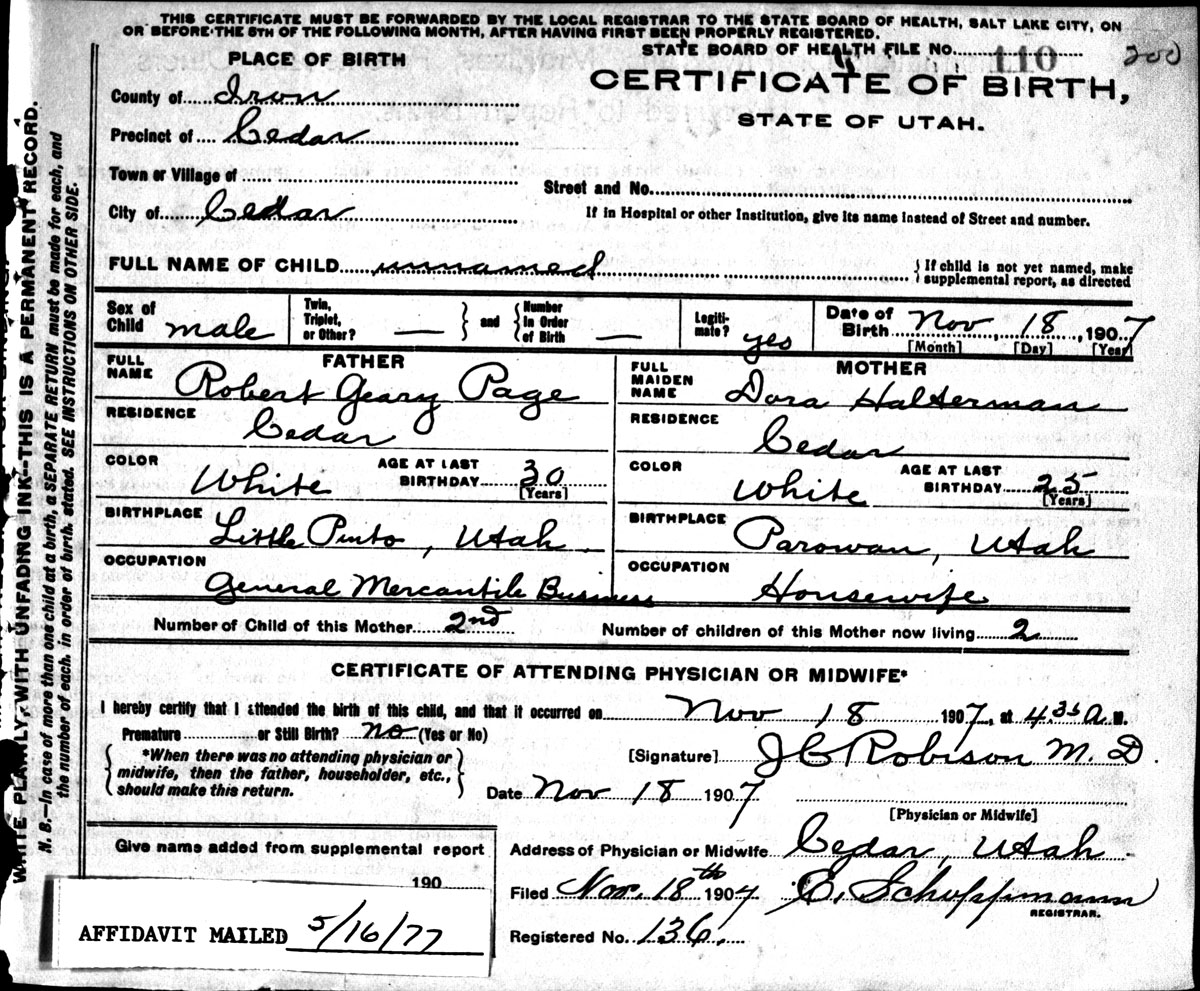 THIS CERTIFICATE MUST BE FORWARDED BY THE LOCAL REGISTRAR TO THE STATE BOARD OF HEALTH, SALT LAKE CITY, ON
OR BEFORE THE 5TH OF THE FOLLOWING MONTH, AFTER HAVING FIRST BEEN PROPERLY REGISTERED.
STATE BOARD OF HEALTH FILE NO. 110 200
PLACE OF BIRTH
CERTIFICATE OF BIRTH,
STATE OF UTAH.
County of Iron
Precinct of Cedar
Town or Village of
Street and No.
City of Cedar
If in Hospital or other Institution, give its name instead of Street and number.
FULL NAME OF CHILD unnamed
If child is not yet named, make
supplemental report, as directed
Sex of Child male Twin, Triplet, or Other? — and Number in Order of Birth — Legiti-mate? yes Date of Birth Nov, 18, 1907
[Month] [Day] [Year]
FATHER MOTHER
FULL NAME Robert Geary Page FULL MAIDEN NAME Dora Halterman
RESIDENCE Cedar RESIDENCE Cedar
COLOR White AGE AT LAST BIRTHDAY 30 [Years] COLOR White AGE AT LAST BIRTHDAY 25 [Years]
BIRTHPLACE Little Pinto, Utah BIRTHPLACE Parowan, Utah
OCCUPATION General Mercantile Business OCCUPATION Housewife
Number of Child of this Mother 2nd Number of children of this Mother now living 2
CERTIFICATE OF ATTENDING PHYSICIAN OR MIDWIFE*
I hereby certify that I attended the birth of this child, and that it occurred on Nov 18 1907, at 4 35 A. M.
Premature or Still Birth? No (Yes or No)
*When there was no attending physician or
midwife, then the father, householder, etc.,
should make this return.
[Signature] J C Robison M. D.
Date Nov 18 1907
[Physician or Midwife]
Give name added from supplemental report
190
Address of Physician or Midwife Cedar, Utah
Filed Nov. 18th 1907 E. Schoppmann
REGISTRAR.
Registered No. 136.
AFFIDAVIT MAILED 5/16/77
WRITE PLAINLY, WITH UNFADING INK--THIS IS A PERMANENT RECORD.
N. B.—In case of more than one child at a birth, a SEPARATE RETURN must be made for each, and
the number of each, in order of birth, stated. SEE INSTRUCTIONS ON OTHER SIDE.